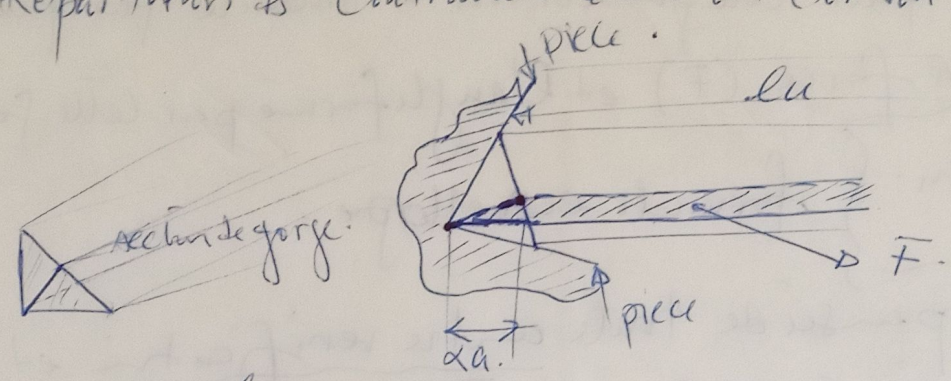 piece.
lu
section de gorge.
F.
piece
αa.